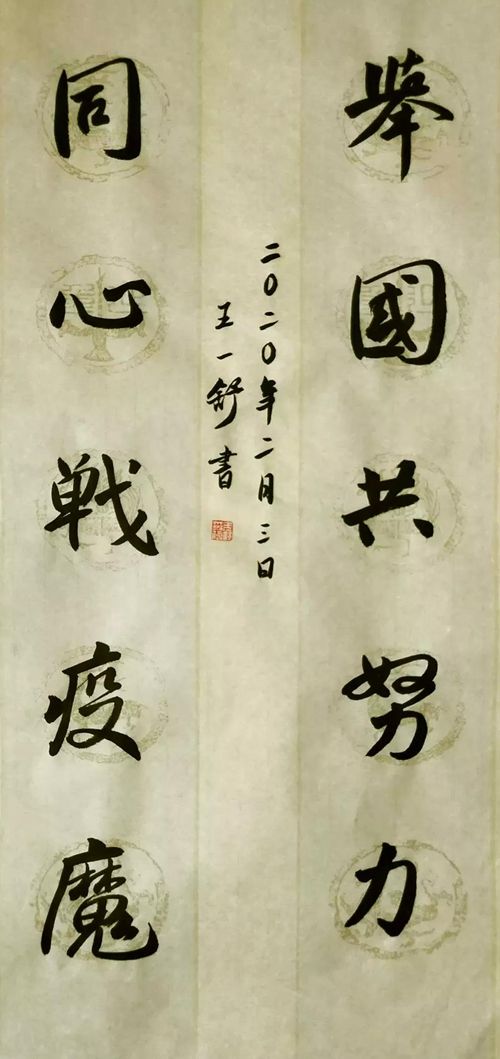 舉國共努力
同心戦疫魔
二〇二〇年二月三日
王一舒書